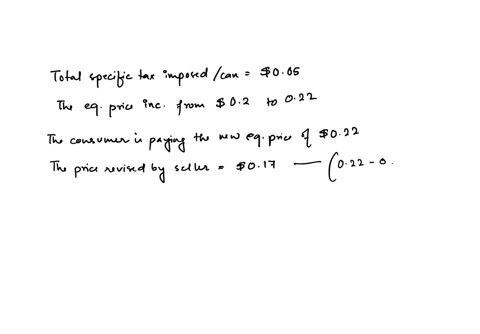 Total specific tax imposed /can = $0.05
The eq. price inc. from $0.2 to 0.22
The consumer is paying the new eq. price of $0.22
The price revised by seller = $0.17 — (0.22 - 0.